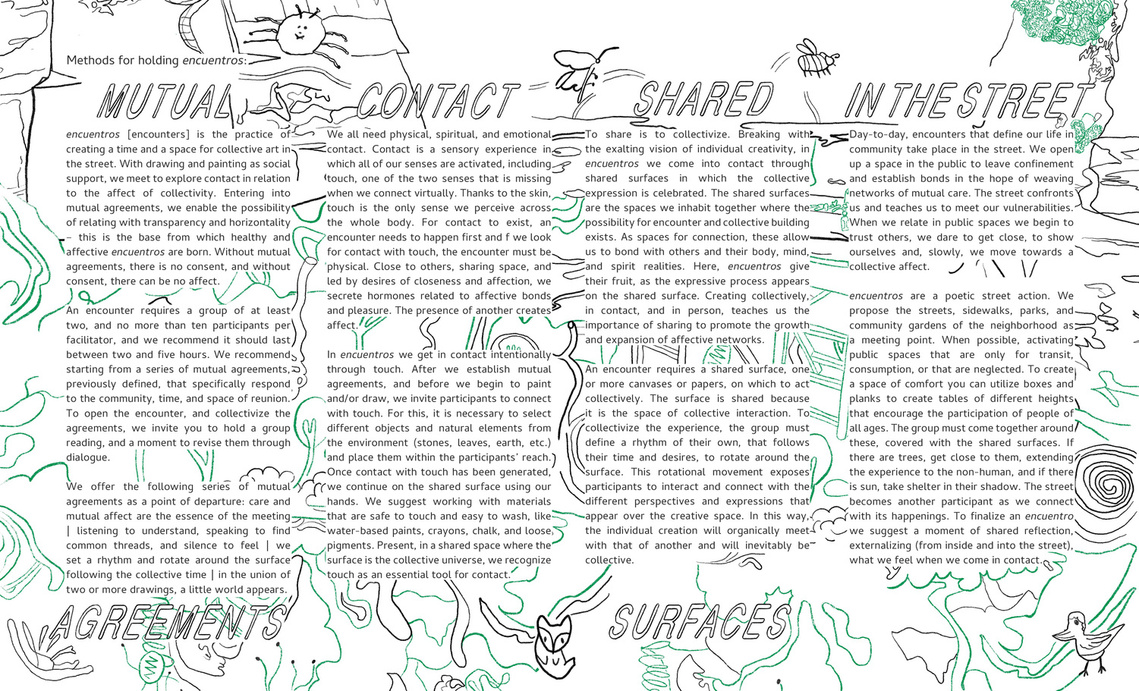 Methods for holding encuentros:
MUTUAL
encuentros [encounters] is the practice of
creating a time and a space for collective art in
the street. With drawing and painting as social
support, we meet to explore contact in relation
to the affect of collectivity. Entering into
mutual agreements, we enable the possibility
of relating with transparency and horizontality
– this is the base from which healthy and
affective encuentros are born. Without mutual
agreements, there is no consent, and without
consent, there can be no affect.
An encounter requires a group of at least
two, and no more than ten participants per
facilitator, and we recommend it should last
between two and five hours. We recommend
starting from a series of mutual agreements,
previously defined, that specifically respond
to the community, time, and space of reunion.
To open the encounter, and collectivize the
agreements, we invite you to hold a group
reading, and a moment to revise them through
dialogue.
We offer the following series of mutual
agreements as a point of departure: care and
mutual affect are the essence of the meeting
| listening to understand, speaking to find
common threads, and silence to feel | we
set a rhythm and rotate around the surface
following the collective time | in the union of
two or more drawings, a little world appears.
AGREEMENTS
CONTACT
We all need physical, spiritual, and emotional
contact. Contact is a sensory experience in
which all of our senses are activated, including
touch, one of the two senses that is missing
when we connect virtually. Thanks to the skin,
touch is the only sense we perceive across
the whole body. For contact to exist, an
encounter needs to happen first and if we look
for contact with touch, the encounter must be
physical. Close to others, sharing space, and
led by desires of closeness and affection, we
secrete hormones related to affective bonds
and pleasure. The presence of another creates
affect.
In encuentros we get in contact intentionally
through touch. After we establish mutual
agreements, and before we begin to paint
and/or draw, we invite participants to connect
with touch. For this, it is necessary to select
different objects and natural elements from
the environment (stones, leaves, earth, etc.)
and place them within the participants' reach.
Once contact with touch has been generated,
we continue on the shared surface using our
hands. We suggest working with materials
that are safe to touch and easy to wash, like
water-based paints, crayons, chalk, and loose
pigments. Present, in a shared space where the
surface is the collective universe, we recognize
touch as an essential tool for contact.
SHARED
To share is to collectivize. Breaking with
the exalting vision of individual creativity, in
encuentros we come into contact through
shared surfaces in which the collective
expression is celebrated. The shared surfaces
are the spaces we inhabit together where the
possibility for encounter and collective building
exists. As spaces for connection, these allow
us to bond with others and their body, mind,
and spirit realities. Here, encuentros give
their fruit, as the expressive process appears
on the shared surface. Creating collectively,
in contact, and in person, teaches us the
importance of sharing to promote the growth
and expansion of affective networks.
An encounter requires a shared surface, one
or more canvases or papers, on which to act
collectively. The surface is shared because
it is the space of collective interaction. To
collectivize the experience, the group must
define a rhythm of their own, that follows
their time and desires, to rotate around the
surface. This rotational movement exposes
participants to interact and connect with the
different perspectives and expressions that
appear over the creative space. In this way,
the individual creation will organically meet
with that of another and will inevitably be
collective.
SURFACES
IN THE STREET
Day-to-day, encounters that define our life in
community take place in the street. We open
up a space in the public to leave confinement
and establish bonds in the hope of weaving
networks of mutual care. The street confronts
us and teaches us to meet our vulnerabilities.
When we relate in public spaces we begin to
trust others, we dare to get close, to show
ourselves and, slowly, we move towards a
collective affect.
encuentros are a poetic street action. We
propose the streets, sidewalks, parks, and
community gardens of the neighborhood as
a meeting point. When possible, activating
public spaces that are only for transit,
consumption, or that are neglected. To create
a space of comfort you can utilize boxes and
planks to create tables of different heights
that encourage the participation of people of
all ages. The group must come together around
these, covered with the shared surfaces. If
there are trees, get close to them, extending
the experience to the non-human, and if there
is sun, take shelter in their shadow. The street
becomes another participant as we connect
with its happenings. To finalize an encuentro
we suggest a moment of shared reflection,
externalizing (from inside and into the street),
what we feel when we come in contact.